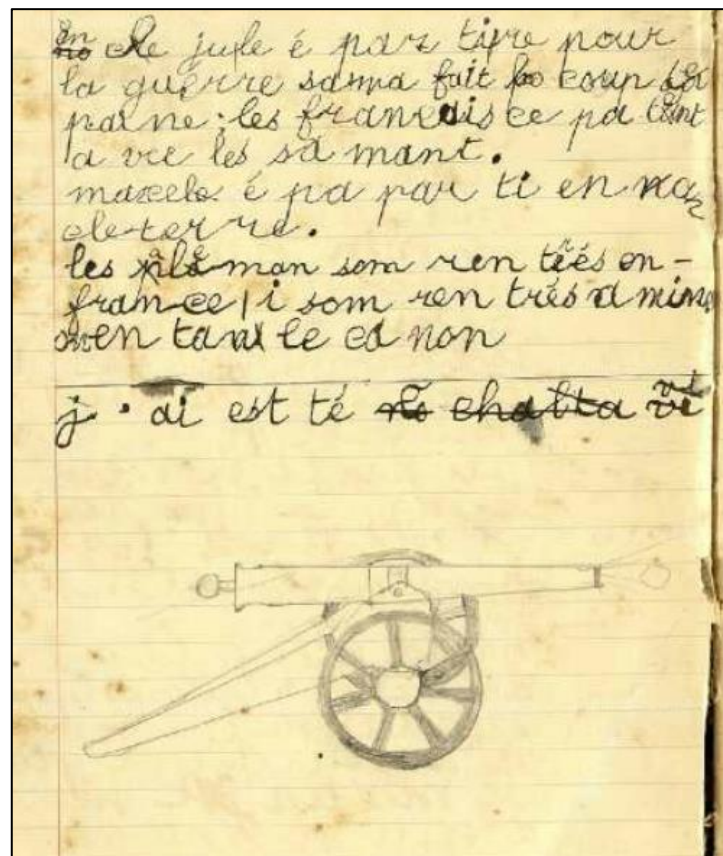 on cle jule é par tire pour
la guérre sama fait bo coup de
paine ; les francais ce pa tent
a vec les sa mant.
marcele é pa par ti en
cle terre.
les man som ren trés en-
fran-ce i som ren trés a mine
en tant le ca non
j'ai est té no chalta vi